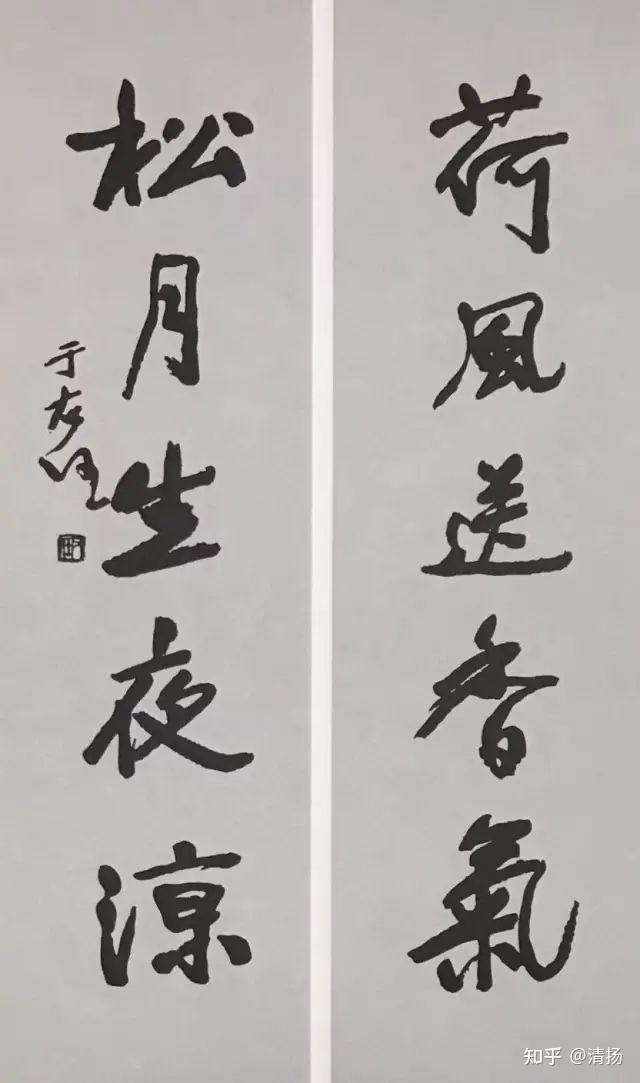 荷風送香氣
松月生夜涼
于右任
知乎 @清扬